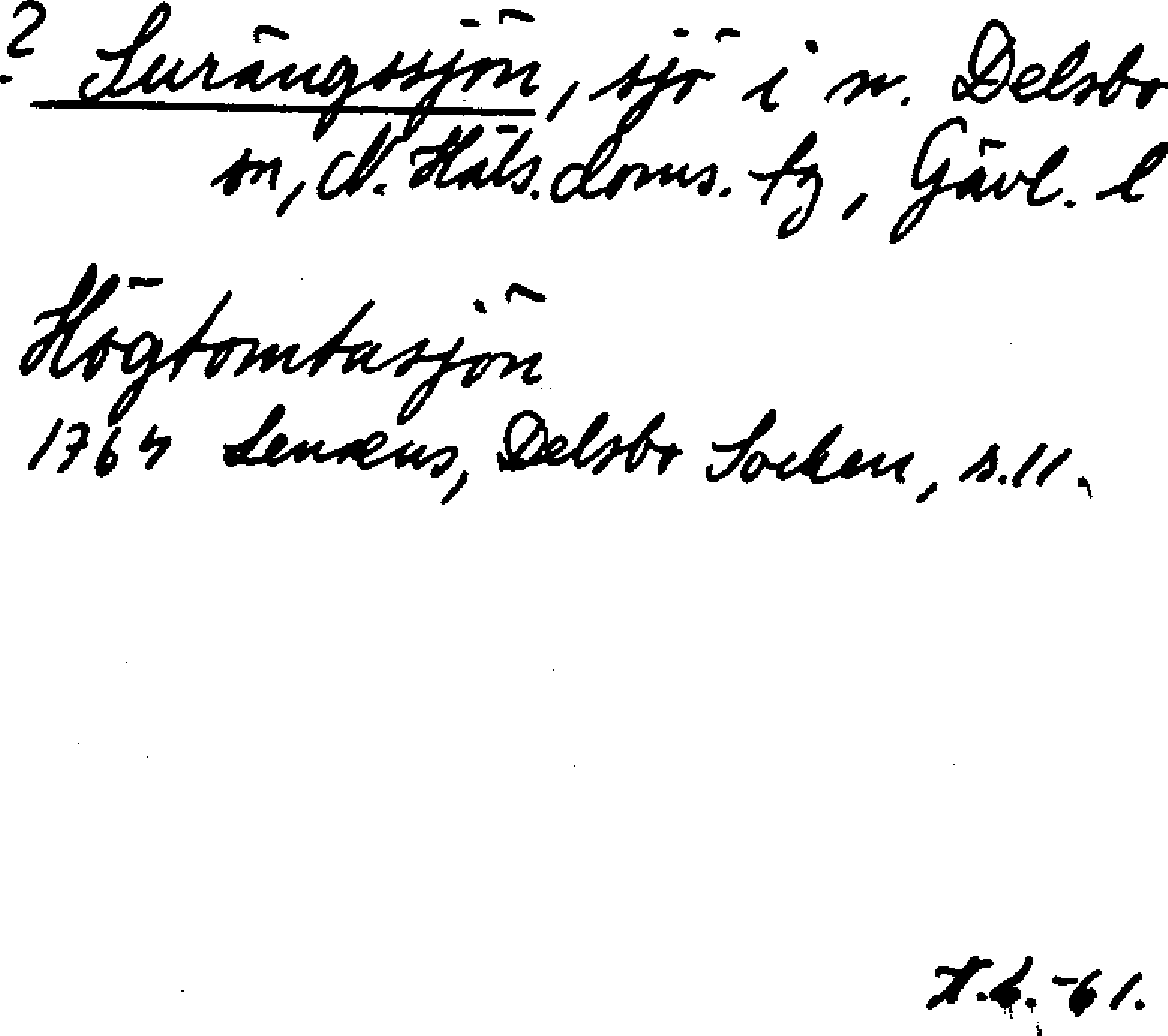 ? Surängssjön, sjö i n. Delsbo
sn, N. Häls. doms. tg, Gävl. l
Högtomtasjön
1764 Lenæus, Delsbo Socken, s. 11.
-61.